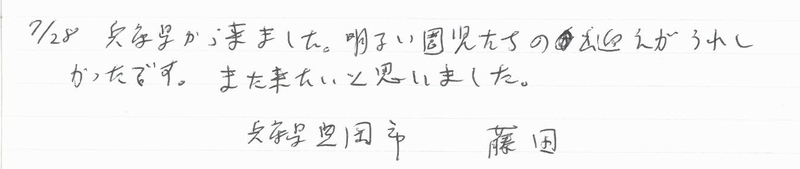 7/28 兵庫県から来ました。明るい園児たちのお迎えがうれし
かったです。また来たいと思いました。
兵庫県豊岡市 藤田